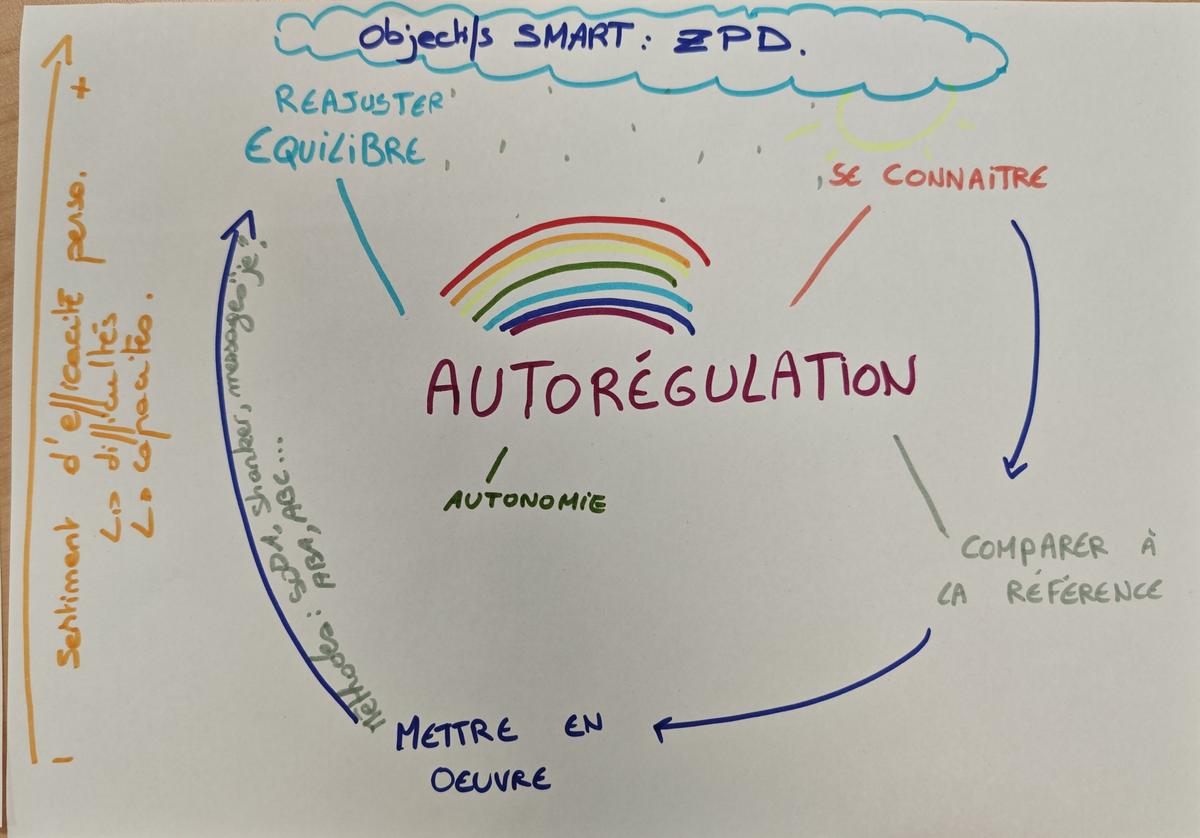 Objectifs SMART : ZPD.
REAJUSTER
EQUILIBRE
SE CONNAITRE
AUTORÉGULATION
AUTONOMIE
COMPARER À
LA RÉFÉRENCE
METTRE EN
OEUVRE
Méthodes : SODA, Shanker, messages "je",
ABA, ABC...
- Sentiment d'efficacité perso. +
↳ difficultés
↳ capacités.